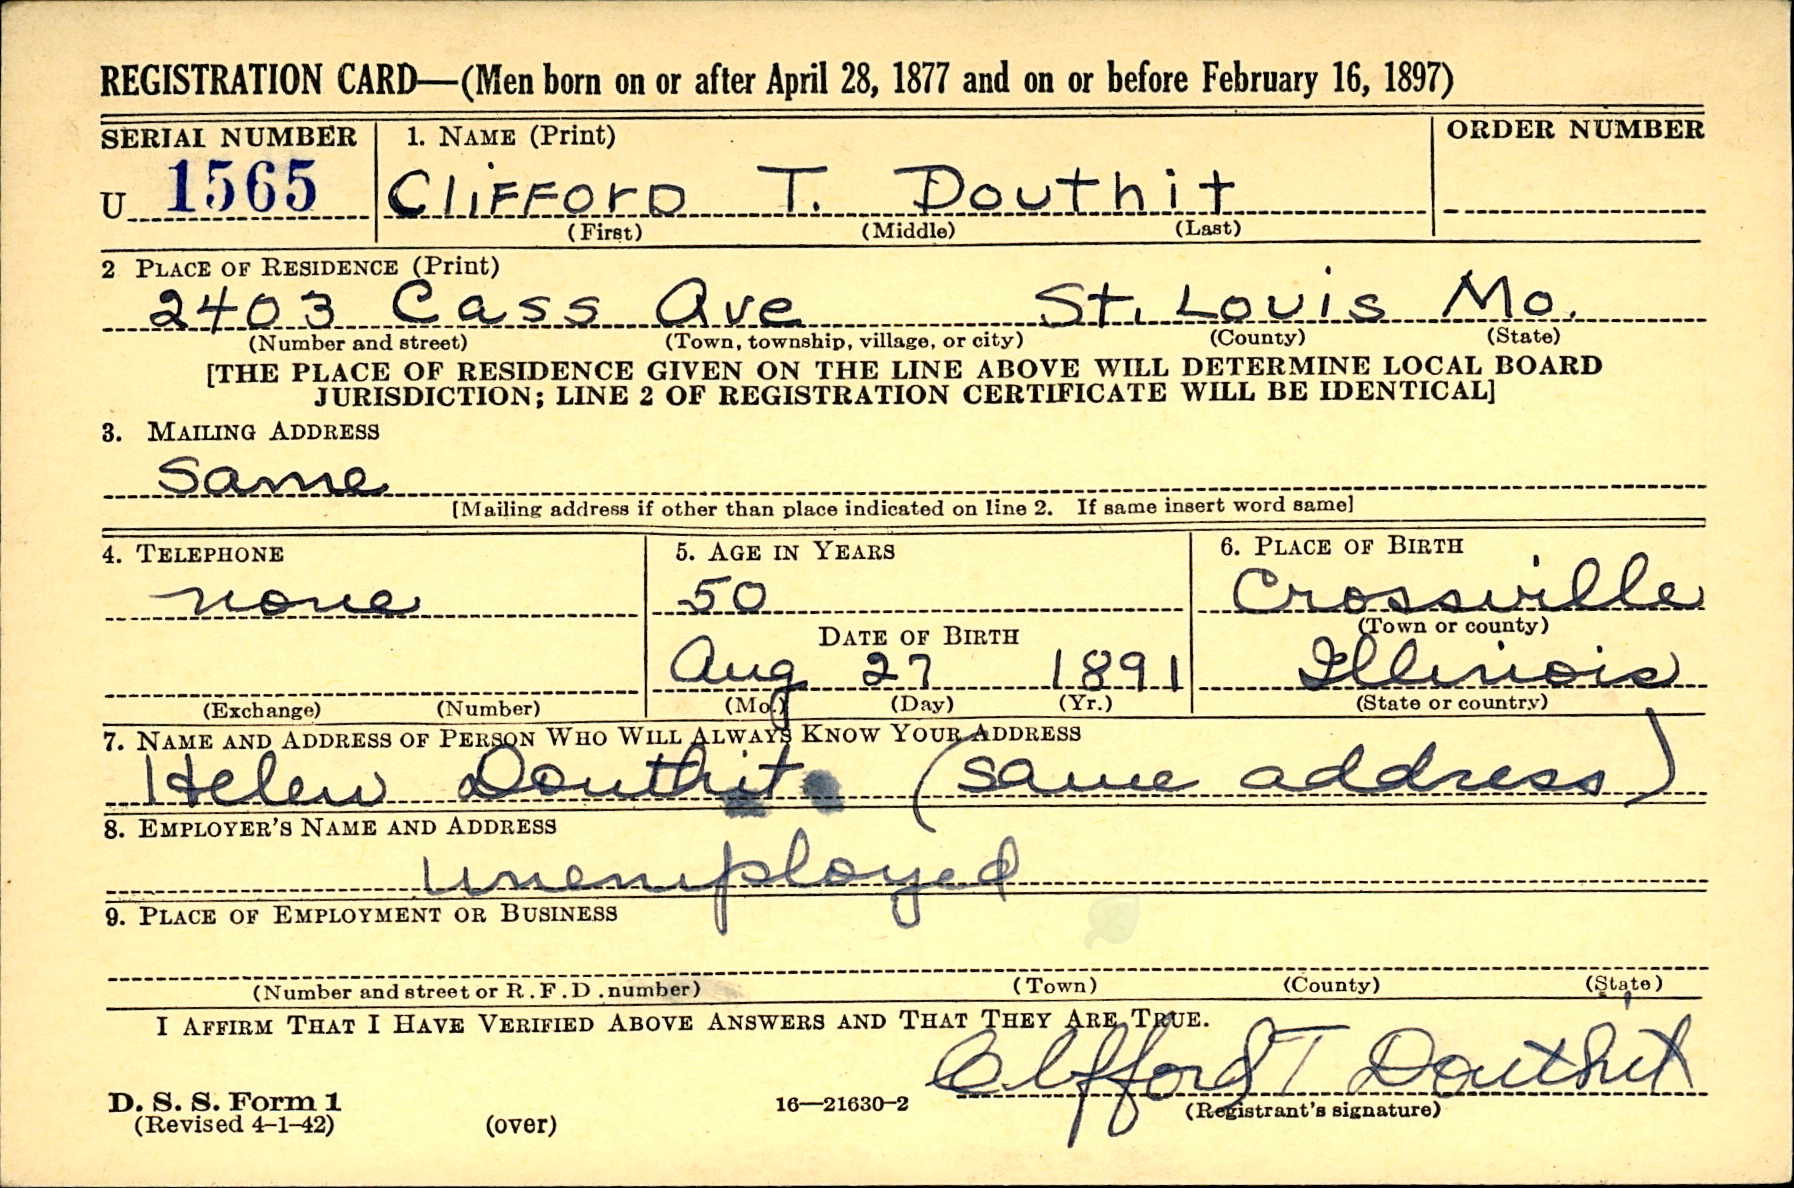 REGISTRATION CARD—(Men born on or after April 28, 1877 and on or before February 16, 1897)
SERIAL NUMBER 1. NAME (Print) ORDER NUMBER
U 1565 Clifford T. Douthit
(First) (Middle) (Last)
2 PLACE OF RESIDENCE (Print)
2403 Cass Ave St. Louis Mo.
(Number and street) (Town, township, village, or city) (County) (State)
[THE PLACE OF RESIDENCE GIVEN ON THE LINE ABOVE WILL DETERMINE LOCAL BOARD
JURISDICTION; LINE 2 OF REGISTRATION CERTIFICATE WILL BE IDENTICAL]
3. MAILING ADDRESS
Same
[Mailing address if other than place indicated on line 2. If same insert word same]
4. TELEPHONE 5. AGE IN YEARS 6. PLACE OF BIRTH
none 50 Crossville
DATE OF BIRTH (Town or county)
Aug 27 1891 Illinois
(Exchange) (Number) (Mo.) (Day) (Yr.) (State or country)
7. NAME AND ADDRESS OF PERSON WHO WILL ALWAYS KNOW YOUR ADDRESS
Helen Douthit. (same address)
8. EMPLOYER'S NAME AND ADDRESS
unemployed
9. PLACE OF EMPLOYMENT OR BUSINESS
(Number and street or R.F.D. number) (Town) (County) (State)
I AFFIRM THAT I HAVE VERIFIED ABOVE ANSWERS AND THAT THEY ARE TRUE.
Clifford T Douthit
D. S. S. Form 1 16—21630-2 (Registrant's signature)
(Revised 4-1-42) (over)